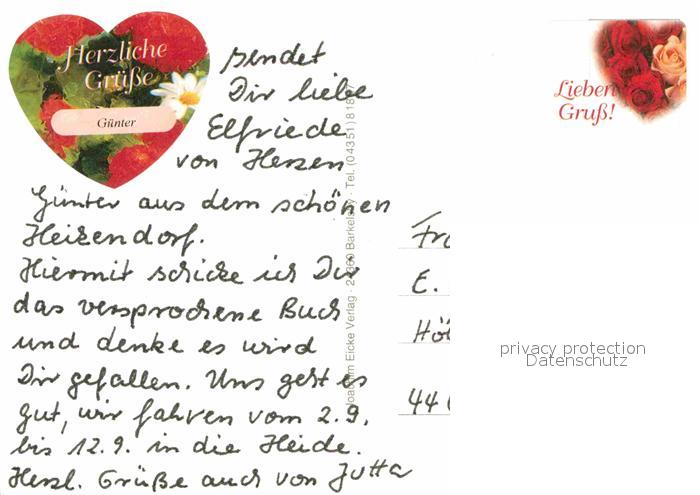 Herzliche
Grüße
Günter
sendet
Dir liebe
Elfriede
von Herzen
Günter aus dem schönen
Heikendorf.
Hiermit schicke ich Dir
das versprochene Buch
und denke es wird
Dir gefallen. Uns geht es
gut, wir fahren vom 2.9.
bis 12.9. in die Heide.
Herzl. Grüße auch von Jutta
Joachim Eicke Verlag · Barkelsby · Tel. (04351) 818
Lieben
Gruß!
E.
44
privacy protection
Datenschutz